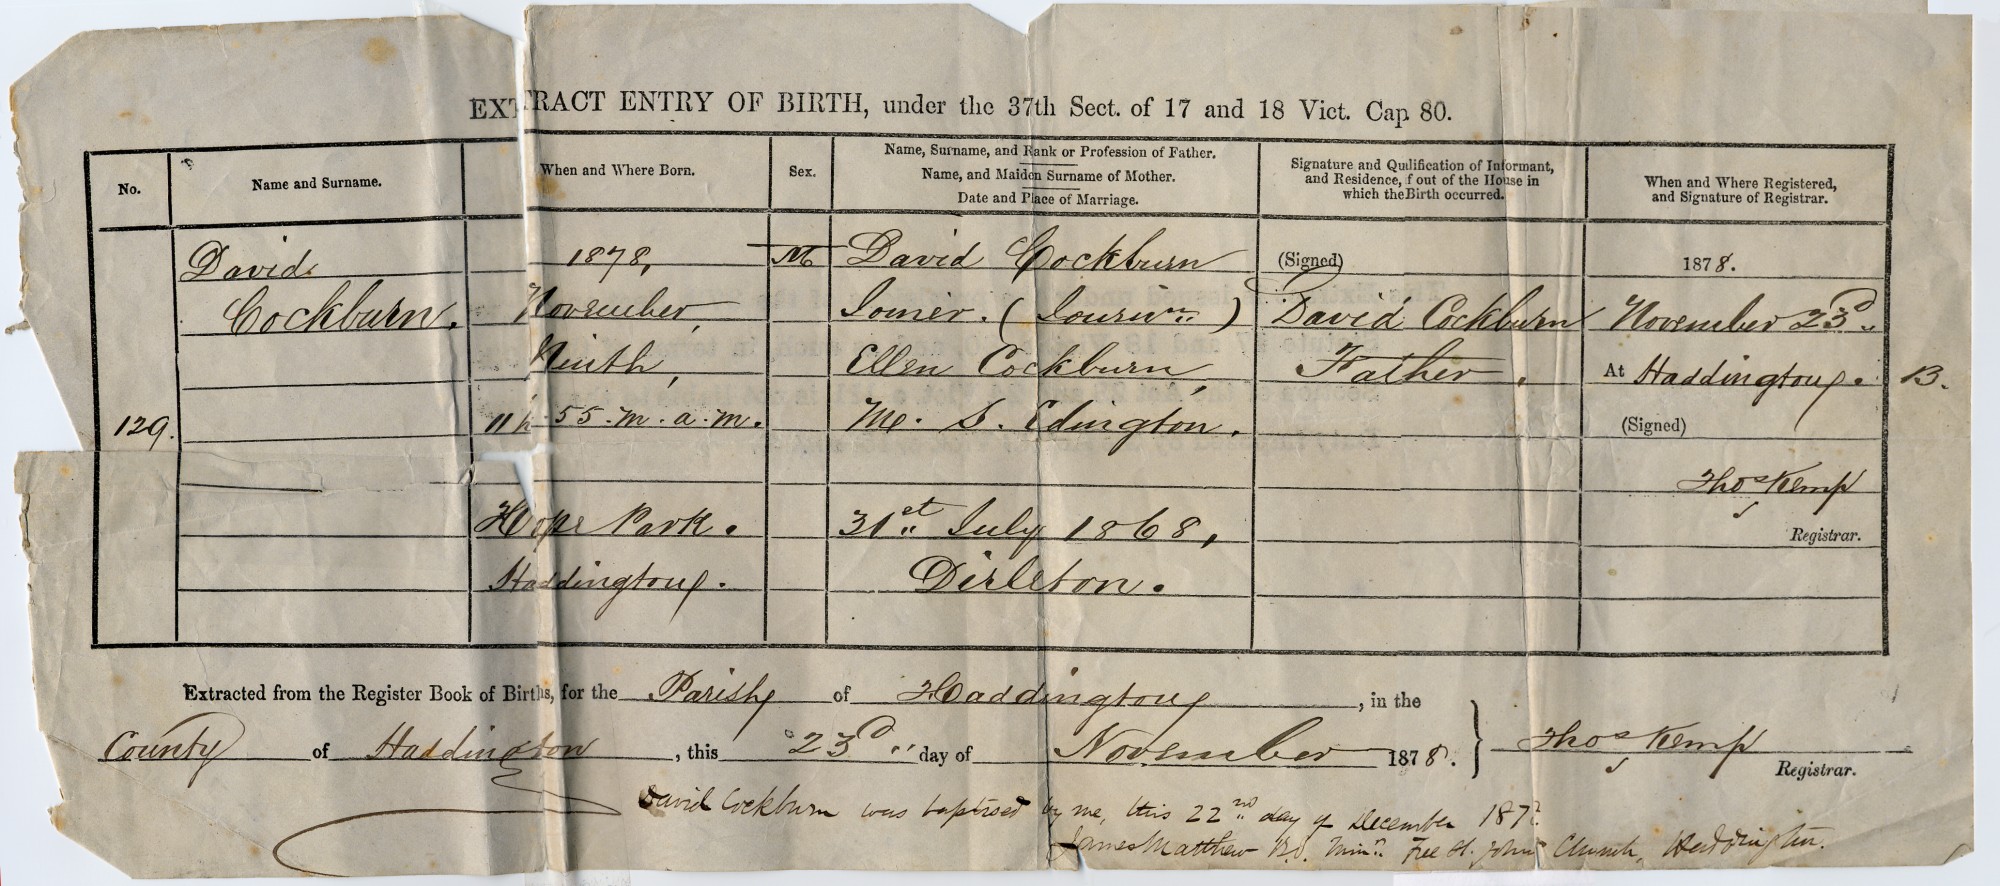 EXTRACT ENTRY OF BIRTH, under the 37th Sect. of 17 and 18 Vict. Cap 80.
No.
Name and Surname.
When and Where Born.
Sex.
Name, Surname, and Rank or Profession of Father.
Name, and Maiden Surname of Mother.
Date and Place of Marriage.
Signature and Qulification of Informant,
and Residence, f out of the House in
which the Birth occurred.
When and Where Registered,
and Signature of Registrar.
129.
David
Cockburn.
1878,
November,
Ninth,
11h 55.m.a.m.
Hope Park.
Haddington.
M
David Cockburn
Joiner. (Journ)
Ellen Cockburn,
M. S. Edington.
31st July 1868,
Dirleton.
(Signed)
David Cockburn
Father.
1878.
November 23d
At Haddington.
(Signed)
Thos Kemp
Registrar.
13.
Extracted from the Register Book of Births, for the Parish of Haddington, in the
County of Haddington, this 23d day of November 1878. Thos Kemp
Registrar.
David Cockburn was baptised by me, this 22nd day of December 187
James Matthew B.D. Minr. Free St. John's Church, Haddington.